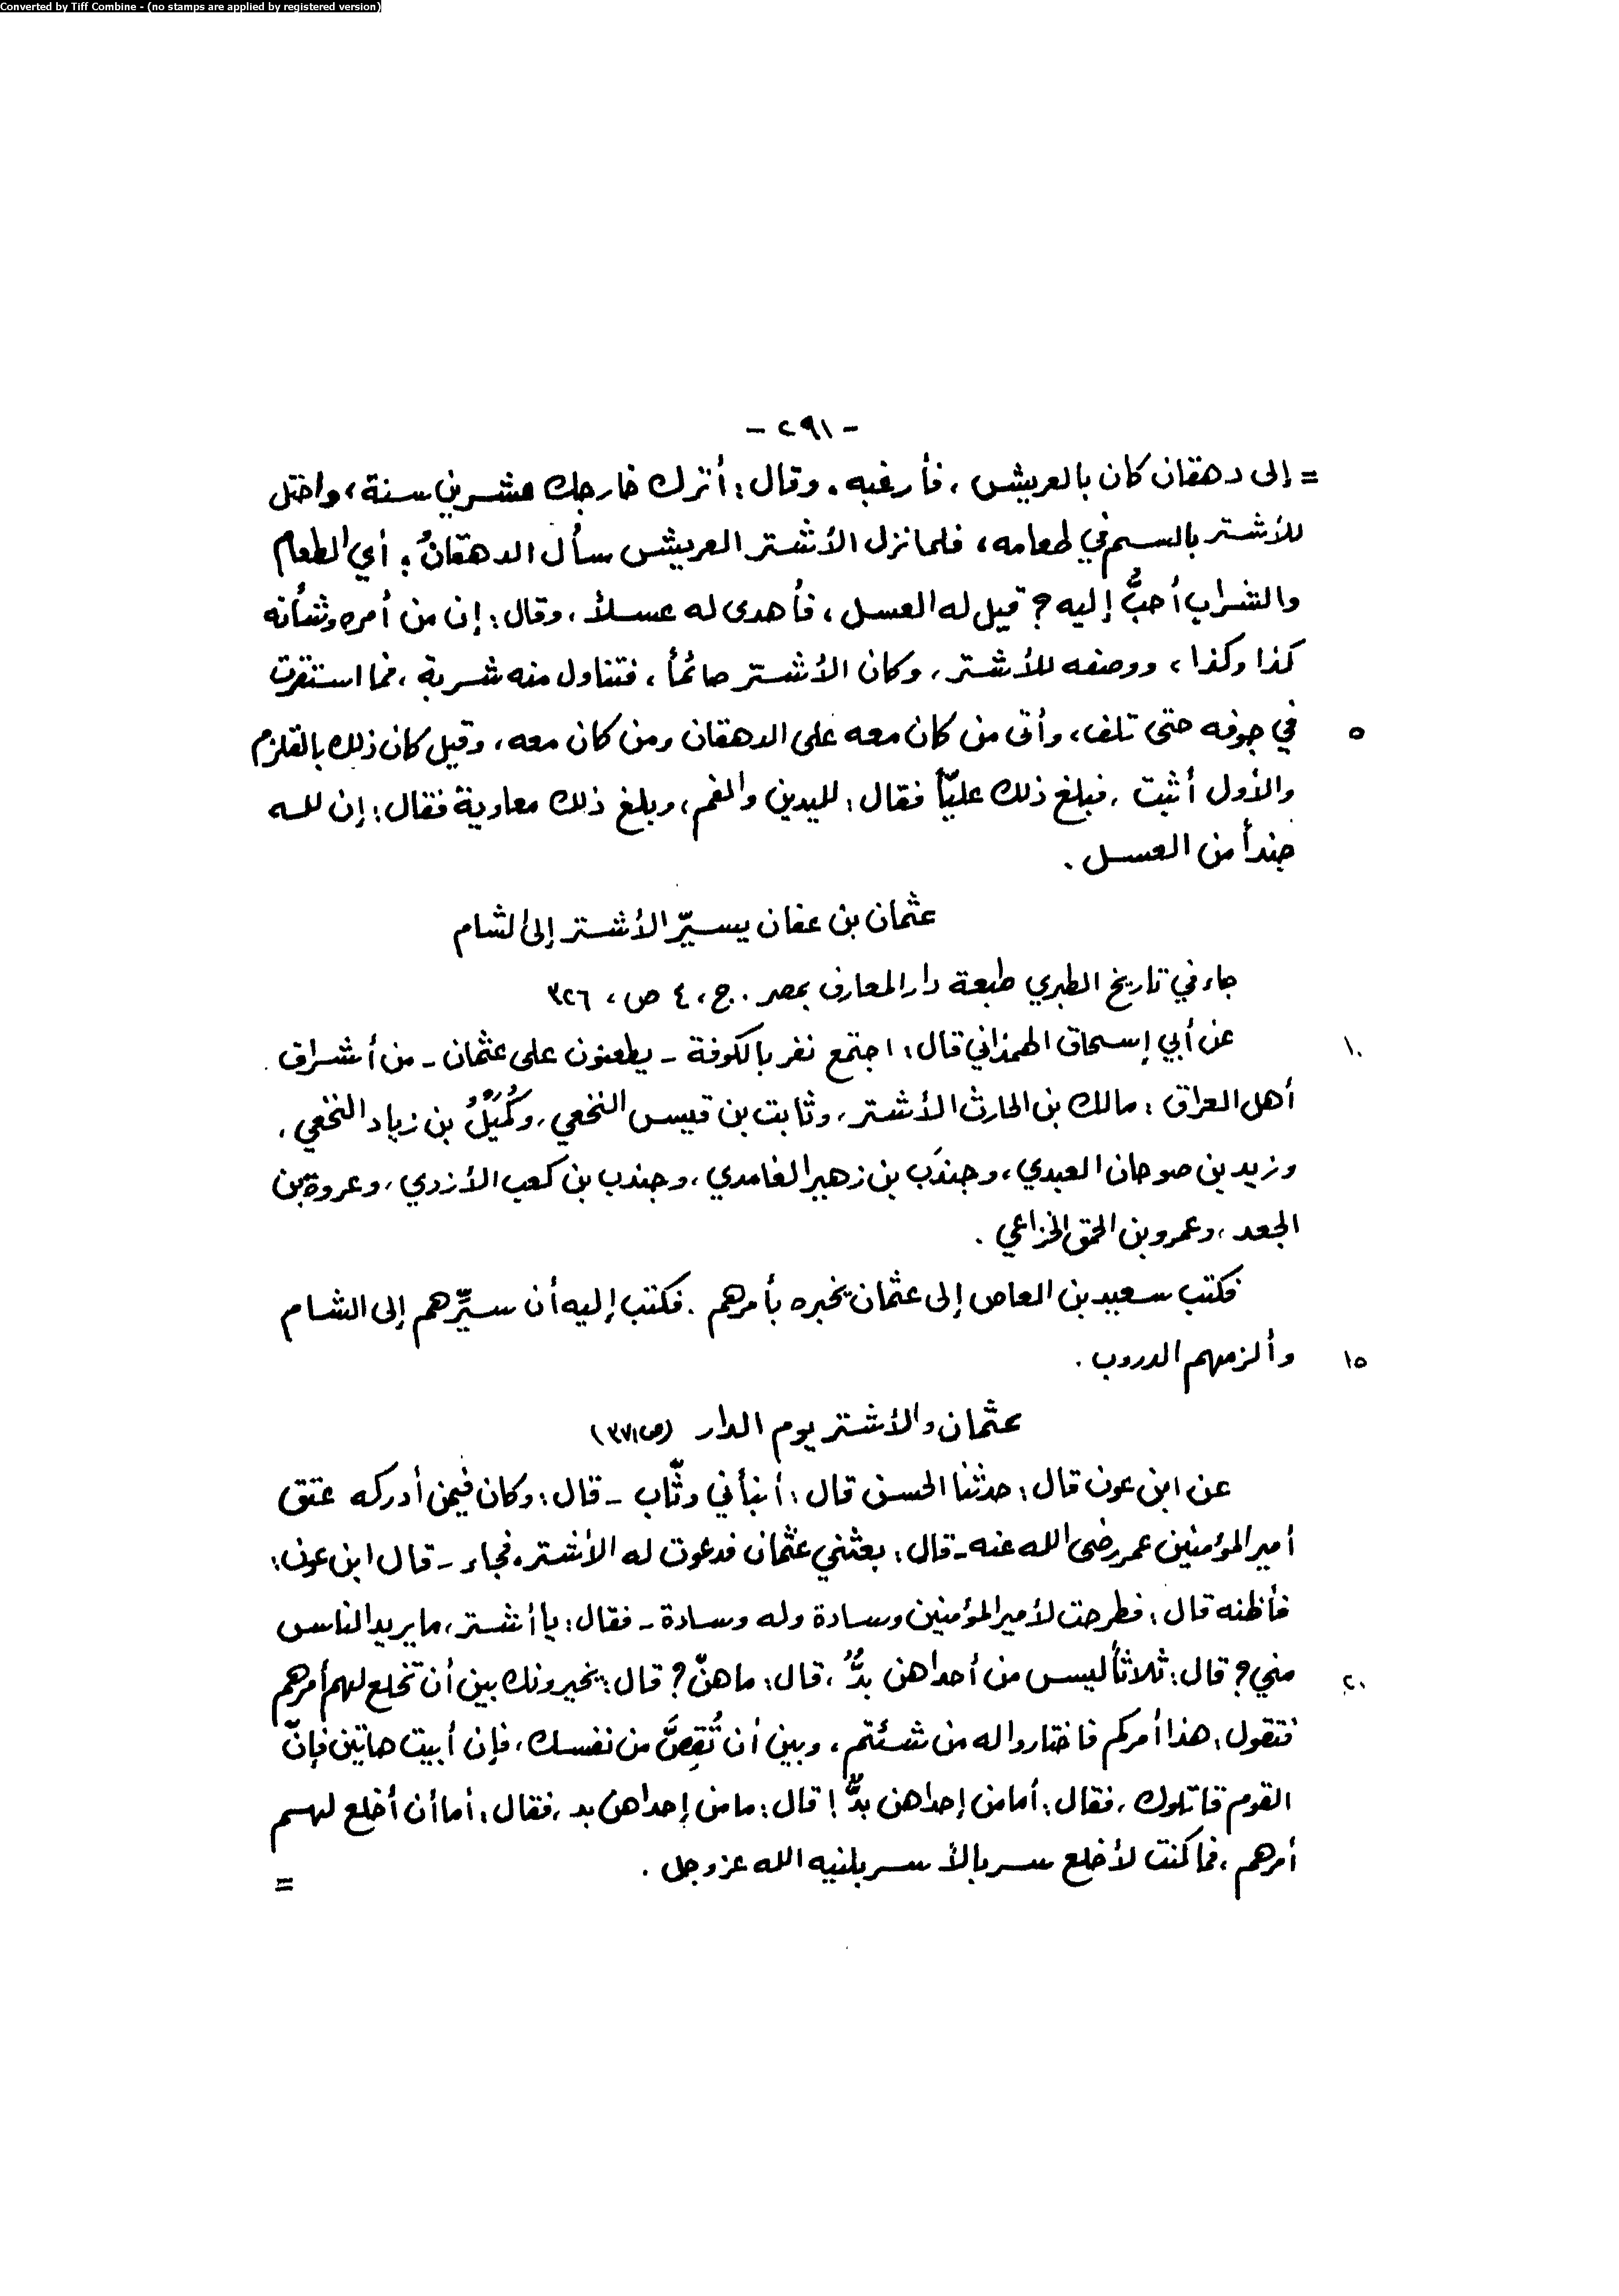 Converted by Tiff Combine - (no stamps are applied by registered version)
- ٢٩١ -
= إلى دهقان كان بالعريش ، فأرغبه . وقال : أترك خارجك عشرين سنة ، واحتل
للأشتر بالسم في طعامه ، فلما نزل الأشتر العريش سأل الدهقانُ : أي الطعام
والشراب أحبُّ إليه ؟ قيل له العسل ، فأهدى له عسلاً ، وقال : إن من أمره وشأنه
كذا وكذا ، ووصفه للأشتر ، وكان الأشتر صائماً ، فتناول منه شربة ، فما استقرت
٥ في جوفه حتى تلف ، وأتى من كان معه على الدهقان ومن كان معه ، وقيل كان ذلك بالقلزم
والأول أثبت ، فبلغ ذلك عليّاً فقال : لليدين والفم ، وبلغ ذلك معاوية فقال : إن لله
جنداً من العسل .
عثمان بن عفان يسيّر الأشتر إلى الشام
جاء في تاريخ الطبري طبعة دار المعارف بمصر . ج ، ٤ ص ، ٣٢٦
١٠ عن أبي إسحاق الهمذاني قال : اجتمع نفر بالكوفة - يطعنون على عثمان - من أشراق
أهل العراق : مالك بن الحارث الأشتر ، وثابت بن قيس النخعي ، وكُمَيْلُ بن زياد النخعي ،
وزيد بن صوحان العبدي ، وجندَب بن زهير الغامدي ، وجندب بن كعب الأزدي ، وعروة بن
الجعد ، وعمرو بن الحمق الخزاعي .
فكتب سعيد بن العاص إلى عثمان يخبره بأمرهم . فكتب إليه أن سيِّرهم إلى الشام
١٥ وألزمهم الدروب .
عثمان والأشتر يوم الدار (ص، ٣٧١)
عن ابن عون قال : حدثنا الحسن قال : أنبأني وثّاب - قال : وكان فيمن أدركه عتق
أمير المؤمنين عمر رضى الله عنه - قال : بعثني عثمان فدعوت له الأشتر ، فجاء - قال ابن عون :
فأظنه قال : فطرحت لأمير المؤمنين وسادة وله وسادة - فقال : يا أشتر ، ما يريد الناس
٢٠ مني ؟ قال : ثلاثاً ليس من أحداهن بدٌّ ، قال : ما هنّ ؟ قال : يخيرونك بين أن تخلع لهم أمرهم
فتقول : هذا أمركم فاختاروا له من شئتم ، وبين أن تُقِصَّ من نفسك ، فإن أبيت هاتين فإنّ
القوم قاتلوك ، فقال : أما من إحداهن بدٌّ ! قال : ما من إحداهن بد ، فقال : أما أن أخلع لهم
أمرهم ، فما كنت لأخلع سربالاً سربلنيه الله عز وجل .
=